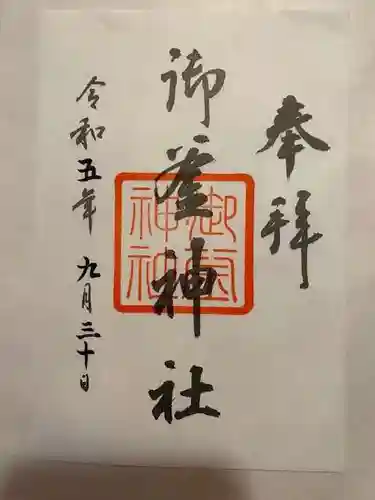 奉拝
御釜神社
御釜神社
令和五年 九月三十日